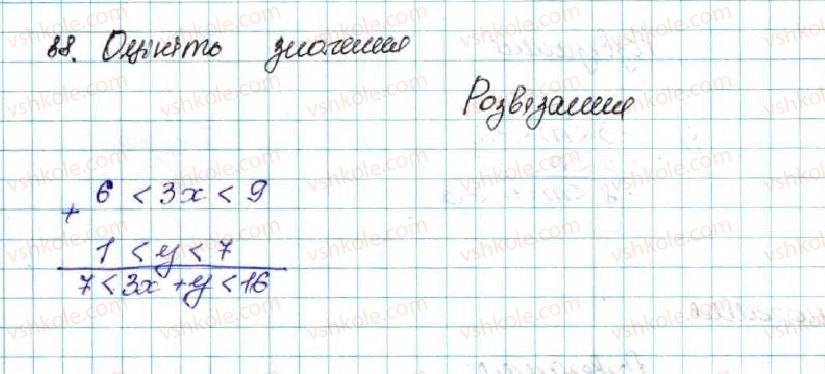 88. Оцініть значення
Розв'язання
+ 6 < 3x < 9
1 < y < 7
7 < 3x + y < 16